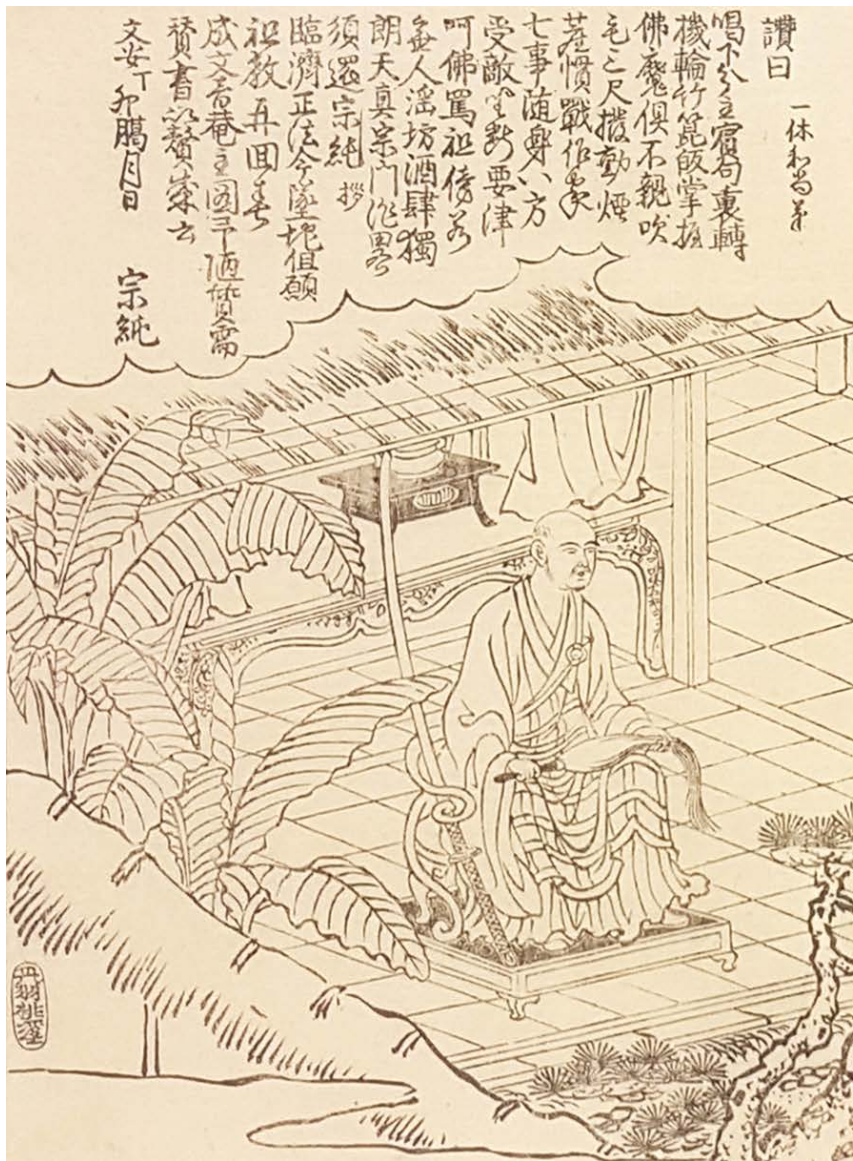 一休和尚筆
讚曰
唱下分主賓句裏轉
機輪竹箆皈掌握
佛魔俱不親吹
毛三尺撥動煙
塵慣戰作家
七事随身八方
受敵坐断要津
呵佛罵祖傍若
無人滛坊酒肆獨
朗天真宗門
須還宗純 拶
臨濟正法今墜地但願
祖教再回春
成文首菴主図予陋質需
賛書以贅云
文安丁卯臈月日 宗純
丹羽桃渓